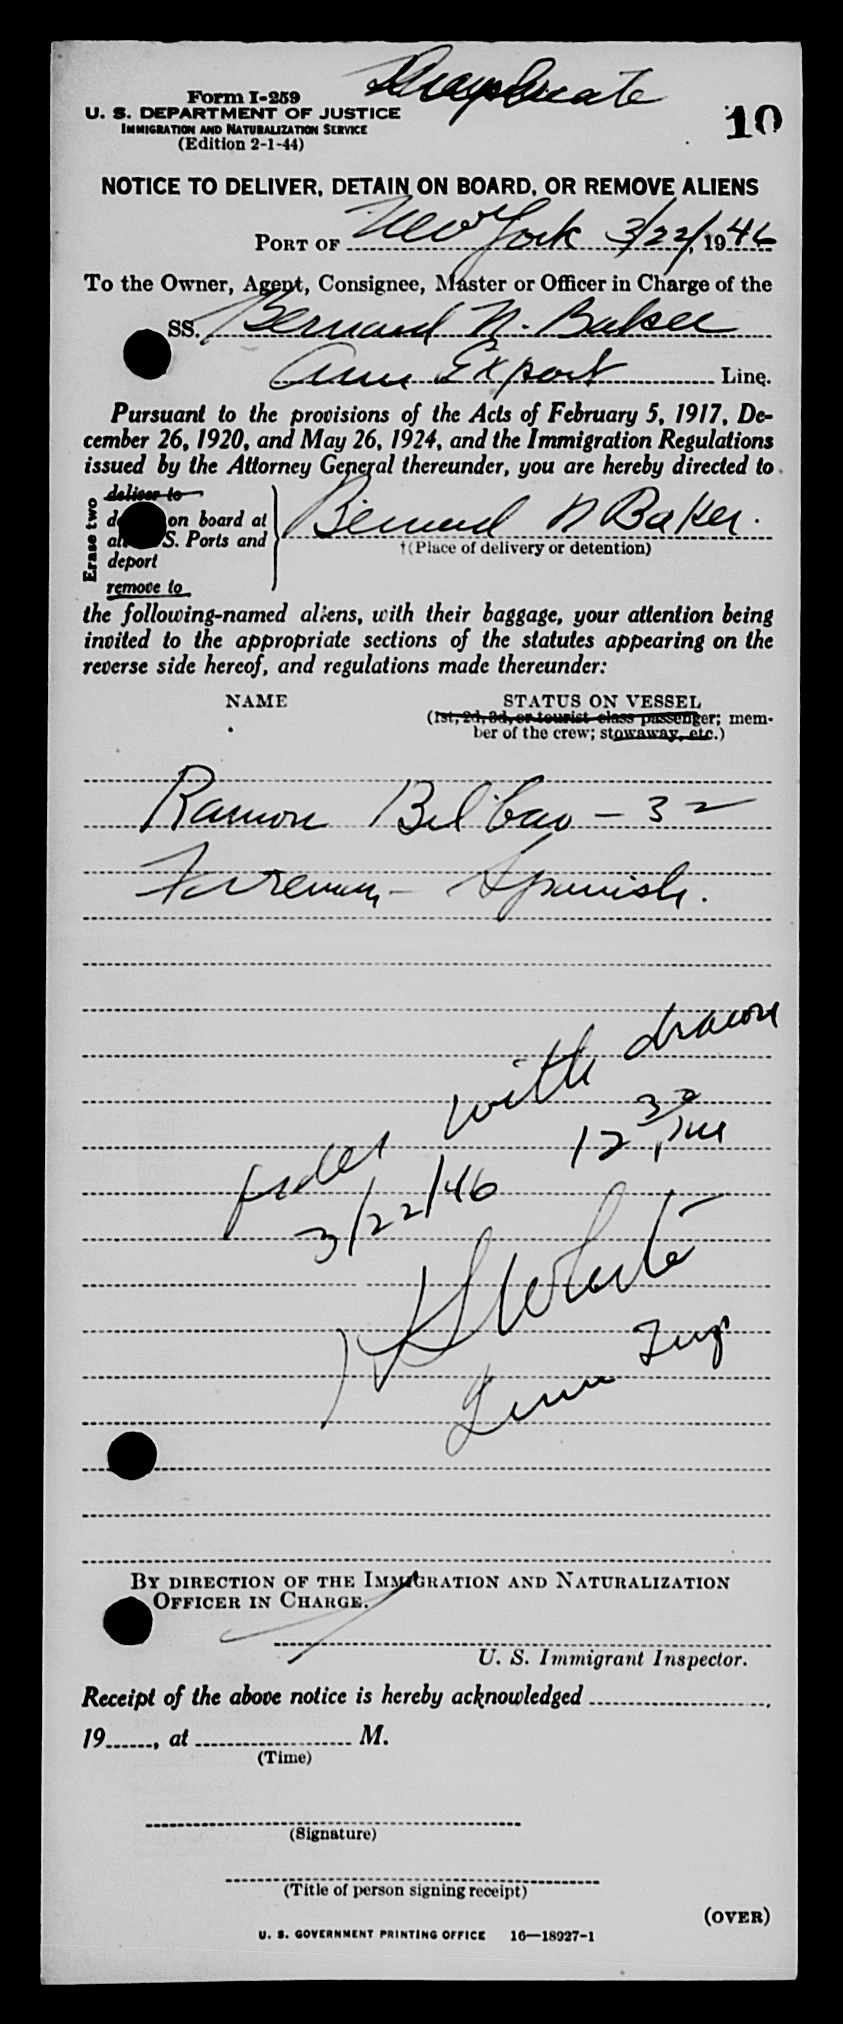 Form I-259
U. S. DEPARTMENT OF JUSTICE
IMMIGRATION AND NATURALIZATION SERVICE
(Edition 2-1-44)
10
NOTICE TO DELIVER, DETAIN ON BOARD, OR REMOVE ALIENS
PORT OF New York 3/22/, 1946
To the Owner, Agent, Consignee, Master or Officer in Charge of the
SS. Bernard N. Baker
Am Export Line.
Pursuant to the provisions of the Acts of February 5, 1917, De-
cember 26, 1920, and May 26, 1924, and the Immigration Regulations
issued by the Attorney General thereunder, you are hereby directed to
Erase two
deliver to
on board at
S. Ports and
deport
remove to
Bernard N Baker.
†(Place of delivery or detention)
the following-named aliens, with their baggage, your attention being
invited to the appropriate sections of the statutes appearing on the
reverse side hereof, and regulations made thereunder:
NAME STATUS ON VESSEL
(1st, 2d, 3d, or tourist class passenger; mem-
ber of the crew; stowaway, etc.)
Ramon Bilbao - 32
Fireman - Spanish.
order with drawn
3/22/46 12 30 PM
White
Imm Insp
BY DIRECTION OF THE IMMIGRATION AND NATURALIZATION
OFFICER IN CHARGE.
U. S. Immigrant Inspector.
Receipt of the above notice is hereby acknowledged
19......, at .................... M.
(Time)
(Signature)
(Title of person signing receipt)
(OVER)
U. S. GOVERNMENT PRINTING OFFICE 16—18927-1